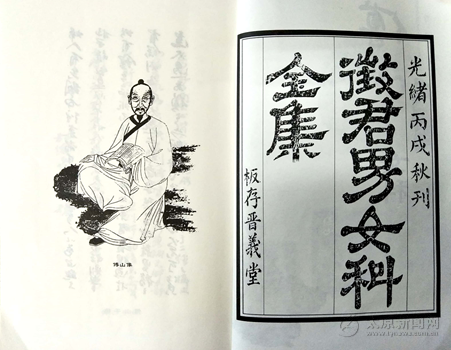 光緒丙戌秋刊
徵君男女科
全集
板存晉義堂
傅山像
太原新闻网